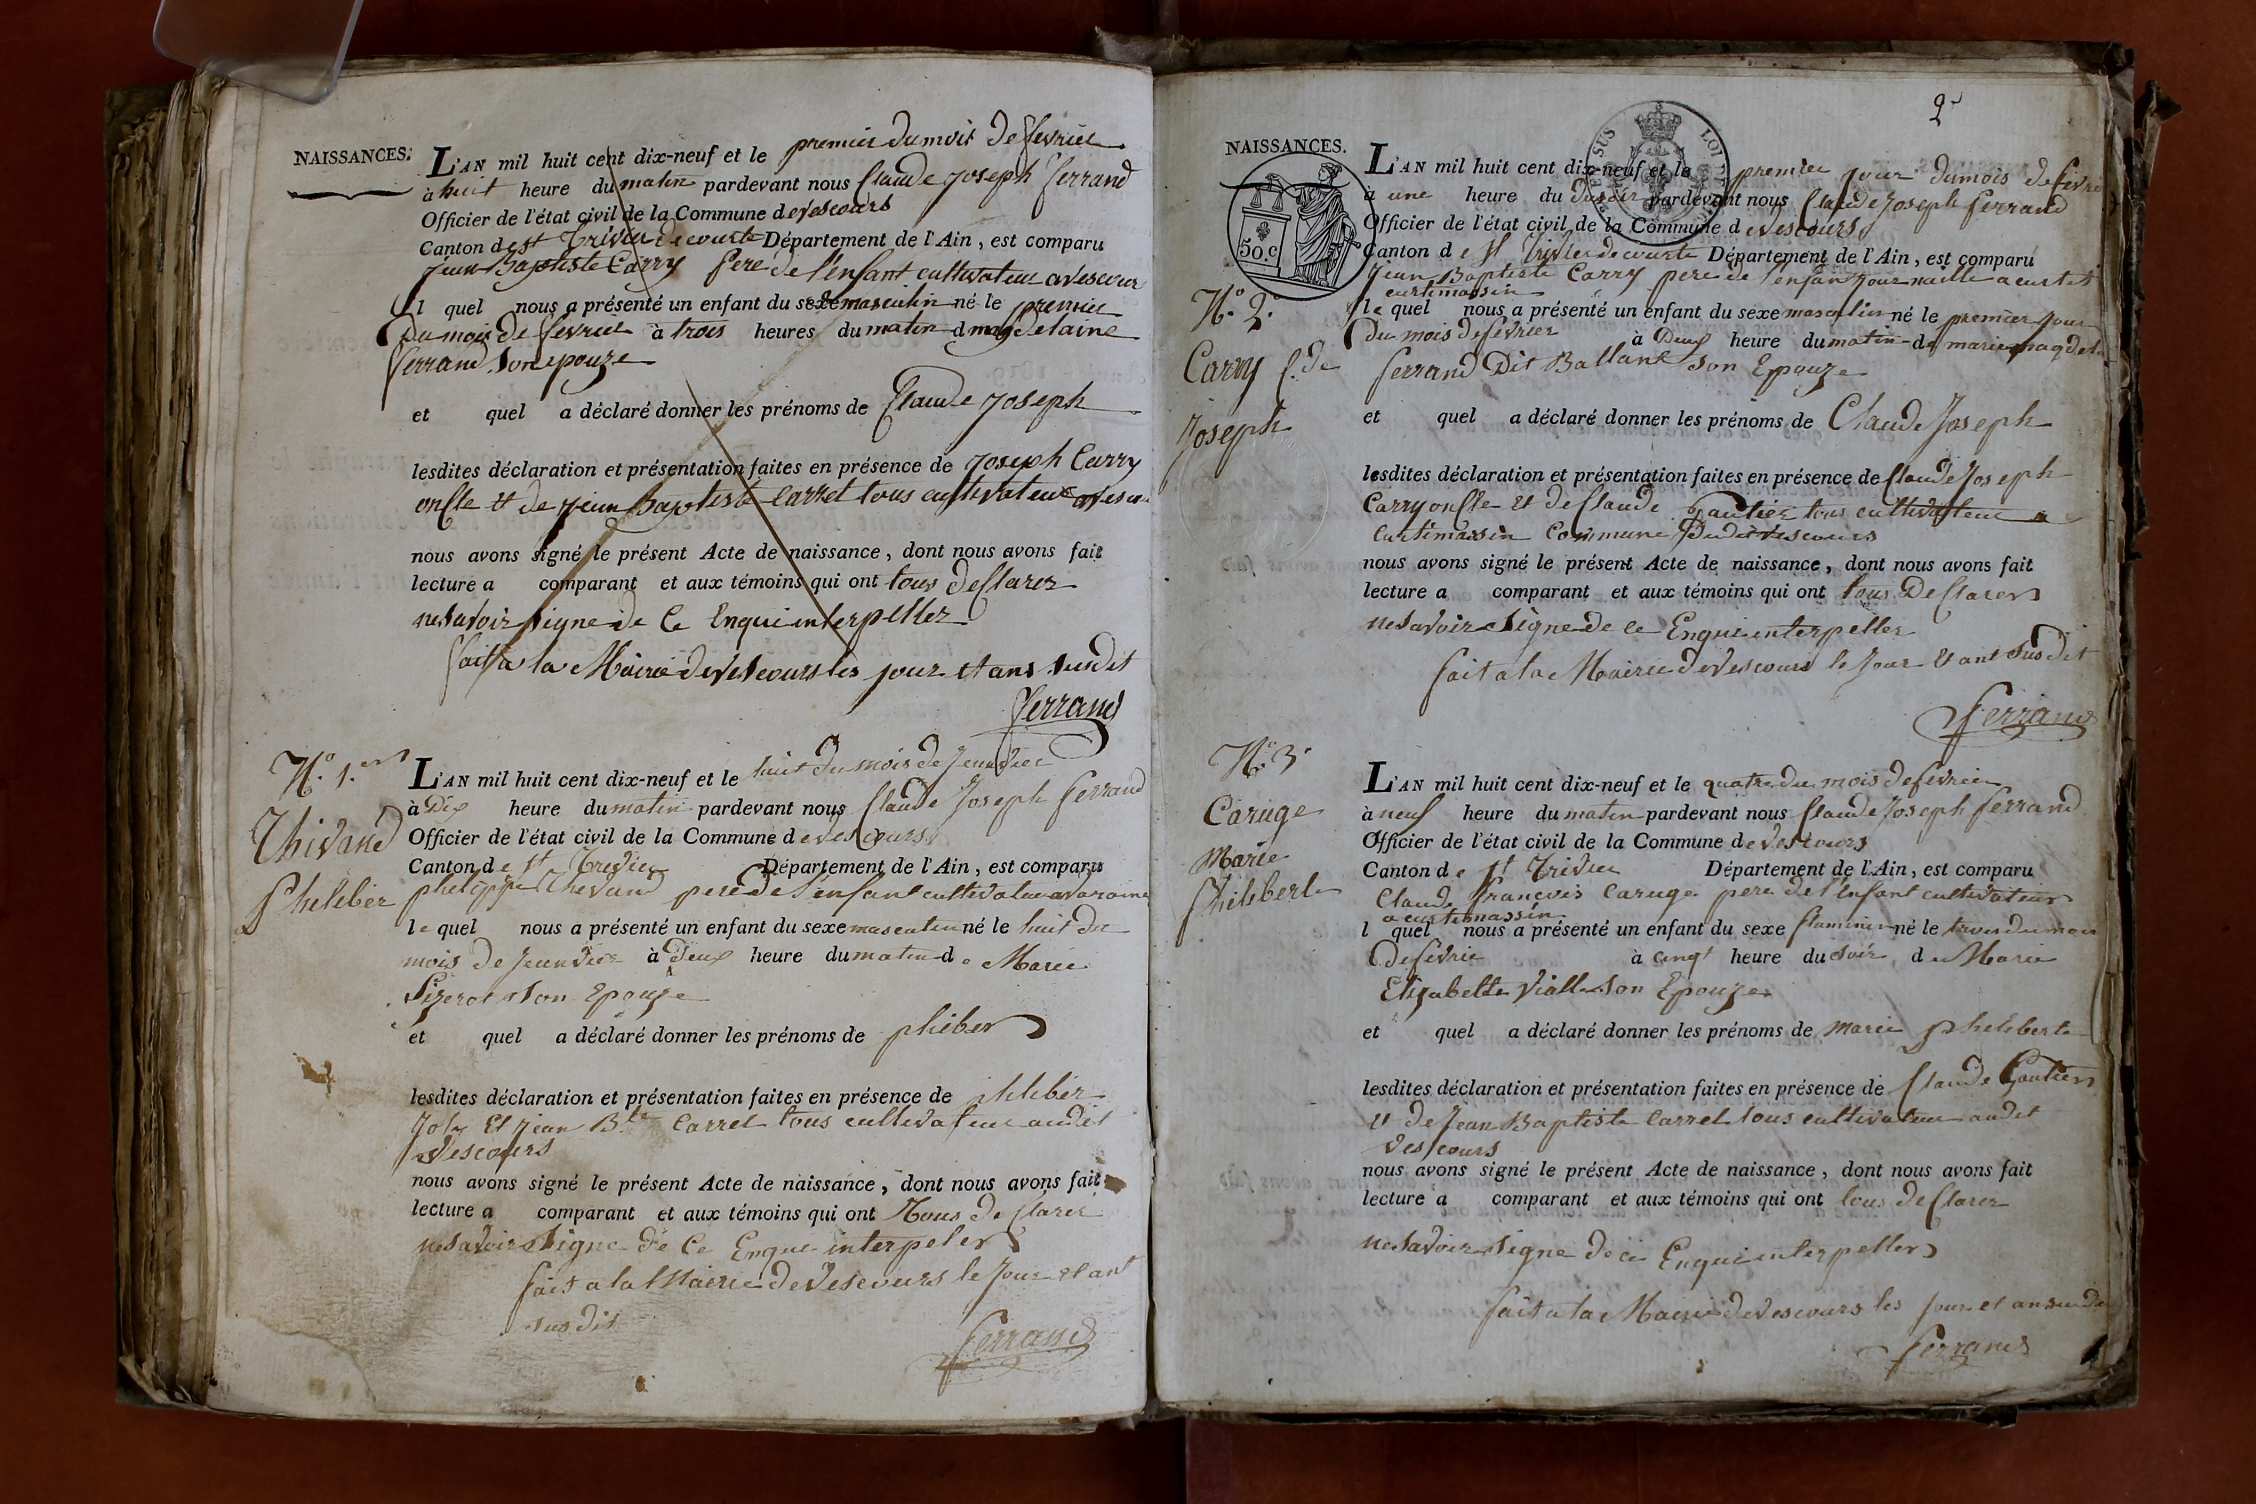 NAISSANCES.
L'AN mil huit cent dix-neuf et le premier du mois de fevrier
à huit heure du matin pardevant nous Claude Joseph ferrand
Officier de l'état civil de la Commune de vescours
Canton de st Trivier de courte Département de l'Ain, est comparu
jean Baptiste Carry pere de l'enfant cultivateur a vescours
l quel nous a présenté un enfant du sexe masculin né le premier
du mois de fevrier à trois heures du matin d magdelaine
ferrand son epouze
et quel a déclaré donner les prénoms de Claude joseph
lesdites déclaration et présentation faites en présence de joseph Carry
oncle et de jean baptiste carret tous cultivateur a vescours
nous avons signé le présent Acte de naissance, dont nous avons fait
lecture a comparant et aux témoins qui ont tous declarer
ne savoir signe de ce Enqui interpeller
fait a la Mairie de vescours les jour et ans susdit
ferrand
N.o 1.er
Thivand
Pheliber
L'AN mil huit cent dix-neuf et le huit du mois de Jeanvier
à Dix heure du matin pardevant nous Claude Joseph ferrand
Officier de l'état civil de la Commune de vescours
Canton de st Trivier Département de l'Ain, est comparu
phelippe Thevand pere de l'enfant cultivateur
le quel nous a présenté un enfant du sexe masculin né le huit du
mois de Jeanvier à deux heure du matin de Marie
son Epouze
et quel a déclaré donner les prénoms de phiber
lesdites déclaration et présentation faites en présence de
Joly Et jean B.te Carret tous cultivateur audit
vescours
nous avons signé le présent Acte de naissance, dont nous avons fait
lecture a comparant et aux témoins qui ont Tous declarer
ne savoir signe de Ce Enqui interpeler
fait a la Mairie de Vescours le Jour et ant
susdit
ferrand
2
NAISSANCES.
50. c
N.o 2.
Carry C. de
Joseph
L'AN mil huit cent dix-neuf et le premier jour du mois de fevri
à une heure du Dusoir pardevant nous Claude Joseph ferrand
Officier de l'état civil de la Commune de vescours
Canton de st Trivier de courte Département de l'Ain, est comparu
Jean Baptiste Carry pere de l'enfan journaille a
curtimassin
le quel nous a présenté un enfant du sexe masculin né le premier jour
du mois de fevrier à Deux heure du matin de marie magdel
ferrand Dit Ballant son Epouze
et quel a déclaré donner les prénoms de Claude Joseph
lesdites déclaration et présentation faites en présence de Claude Joseph
Carry oncle Et de Claude Gautier tous cultivateur a
Curtimassin Commune Dudit vescours
nous avons signé le présent Acte de naissance, dont nous avons fait
lecture a comparant et aux témoins qui ont tous Declarer
ne savoir signe de ce Enqui interpeller
fait a la Mairie de vescours le Jour Et ant susdit
ferrand
N.o 3.
Caruge
Marie
Pheliberte
L'AN mil huit cent dix-neuf et le quatre du mois de fevrier
à neuf heure du matin pardevant nous Claude Joseph ferrand
Officier de l'état civil de la Commune de vescours
Canton de st Trivier Département de l'Ain, est comparu
Claude françois Caruge pere de l'Enfant cultivateur
a curtimassin
l quel nous a présenté un enfant du sexe né le trois du mois
de fevrie à cinq heure du soir de Marie
Elizabette Viall son Epouze
et quel a déclaré donner les prénoms de marie pheliberte
lesdites déclaration et présentation faites en présence de Claude Gautier
et de Jean Baptiste Carret tous cultivateur audit
vescours
nous avons signé le présent Acte de naissance, dont nous avons fait
lecture a comparant et aux témoins qui ont tous declarer
ne savoir signe de ce Enqui interpeller
fait a la Mairie de vescours les jour et an susdi
ferrand